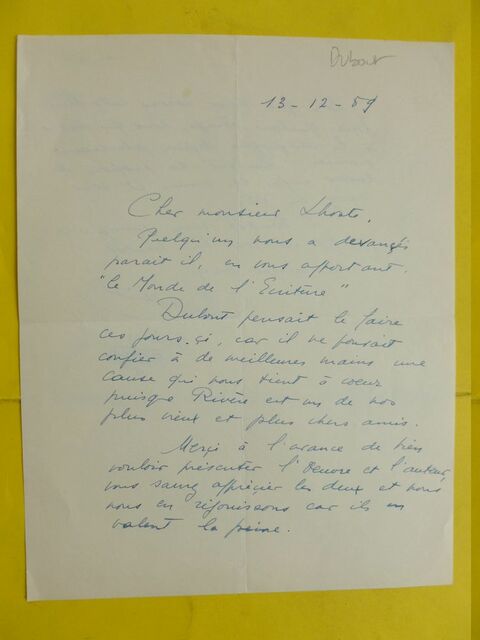 Dubout
13-12-59
Cher monsieur Lhoste,
Quelqu'un nous a devançés
parait il, en vous apportant.
"le Monde de l'Ecriture"
Dubout pensait le faire
ces jours-ci, car il ne pouvait
confier à de meilleures mains une
cause qui nous tient à coeur
puisque Rivère est un de nos
plus vieux et plus chers amis.
Merçi à l'avance de bien
vouloir présenter l'Oeuvre et l'auteur,
vous saurez apprécier les deux et nous
nous en réjouissons car ils en
valent la peine.